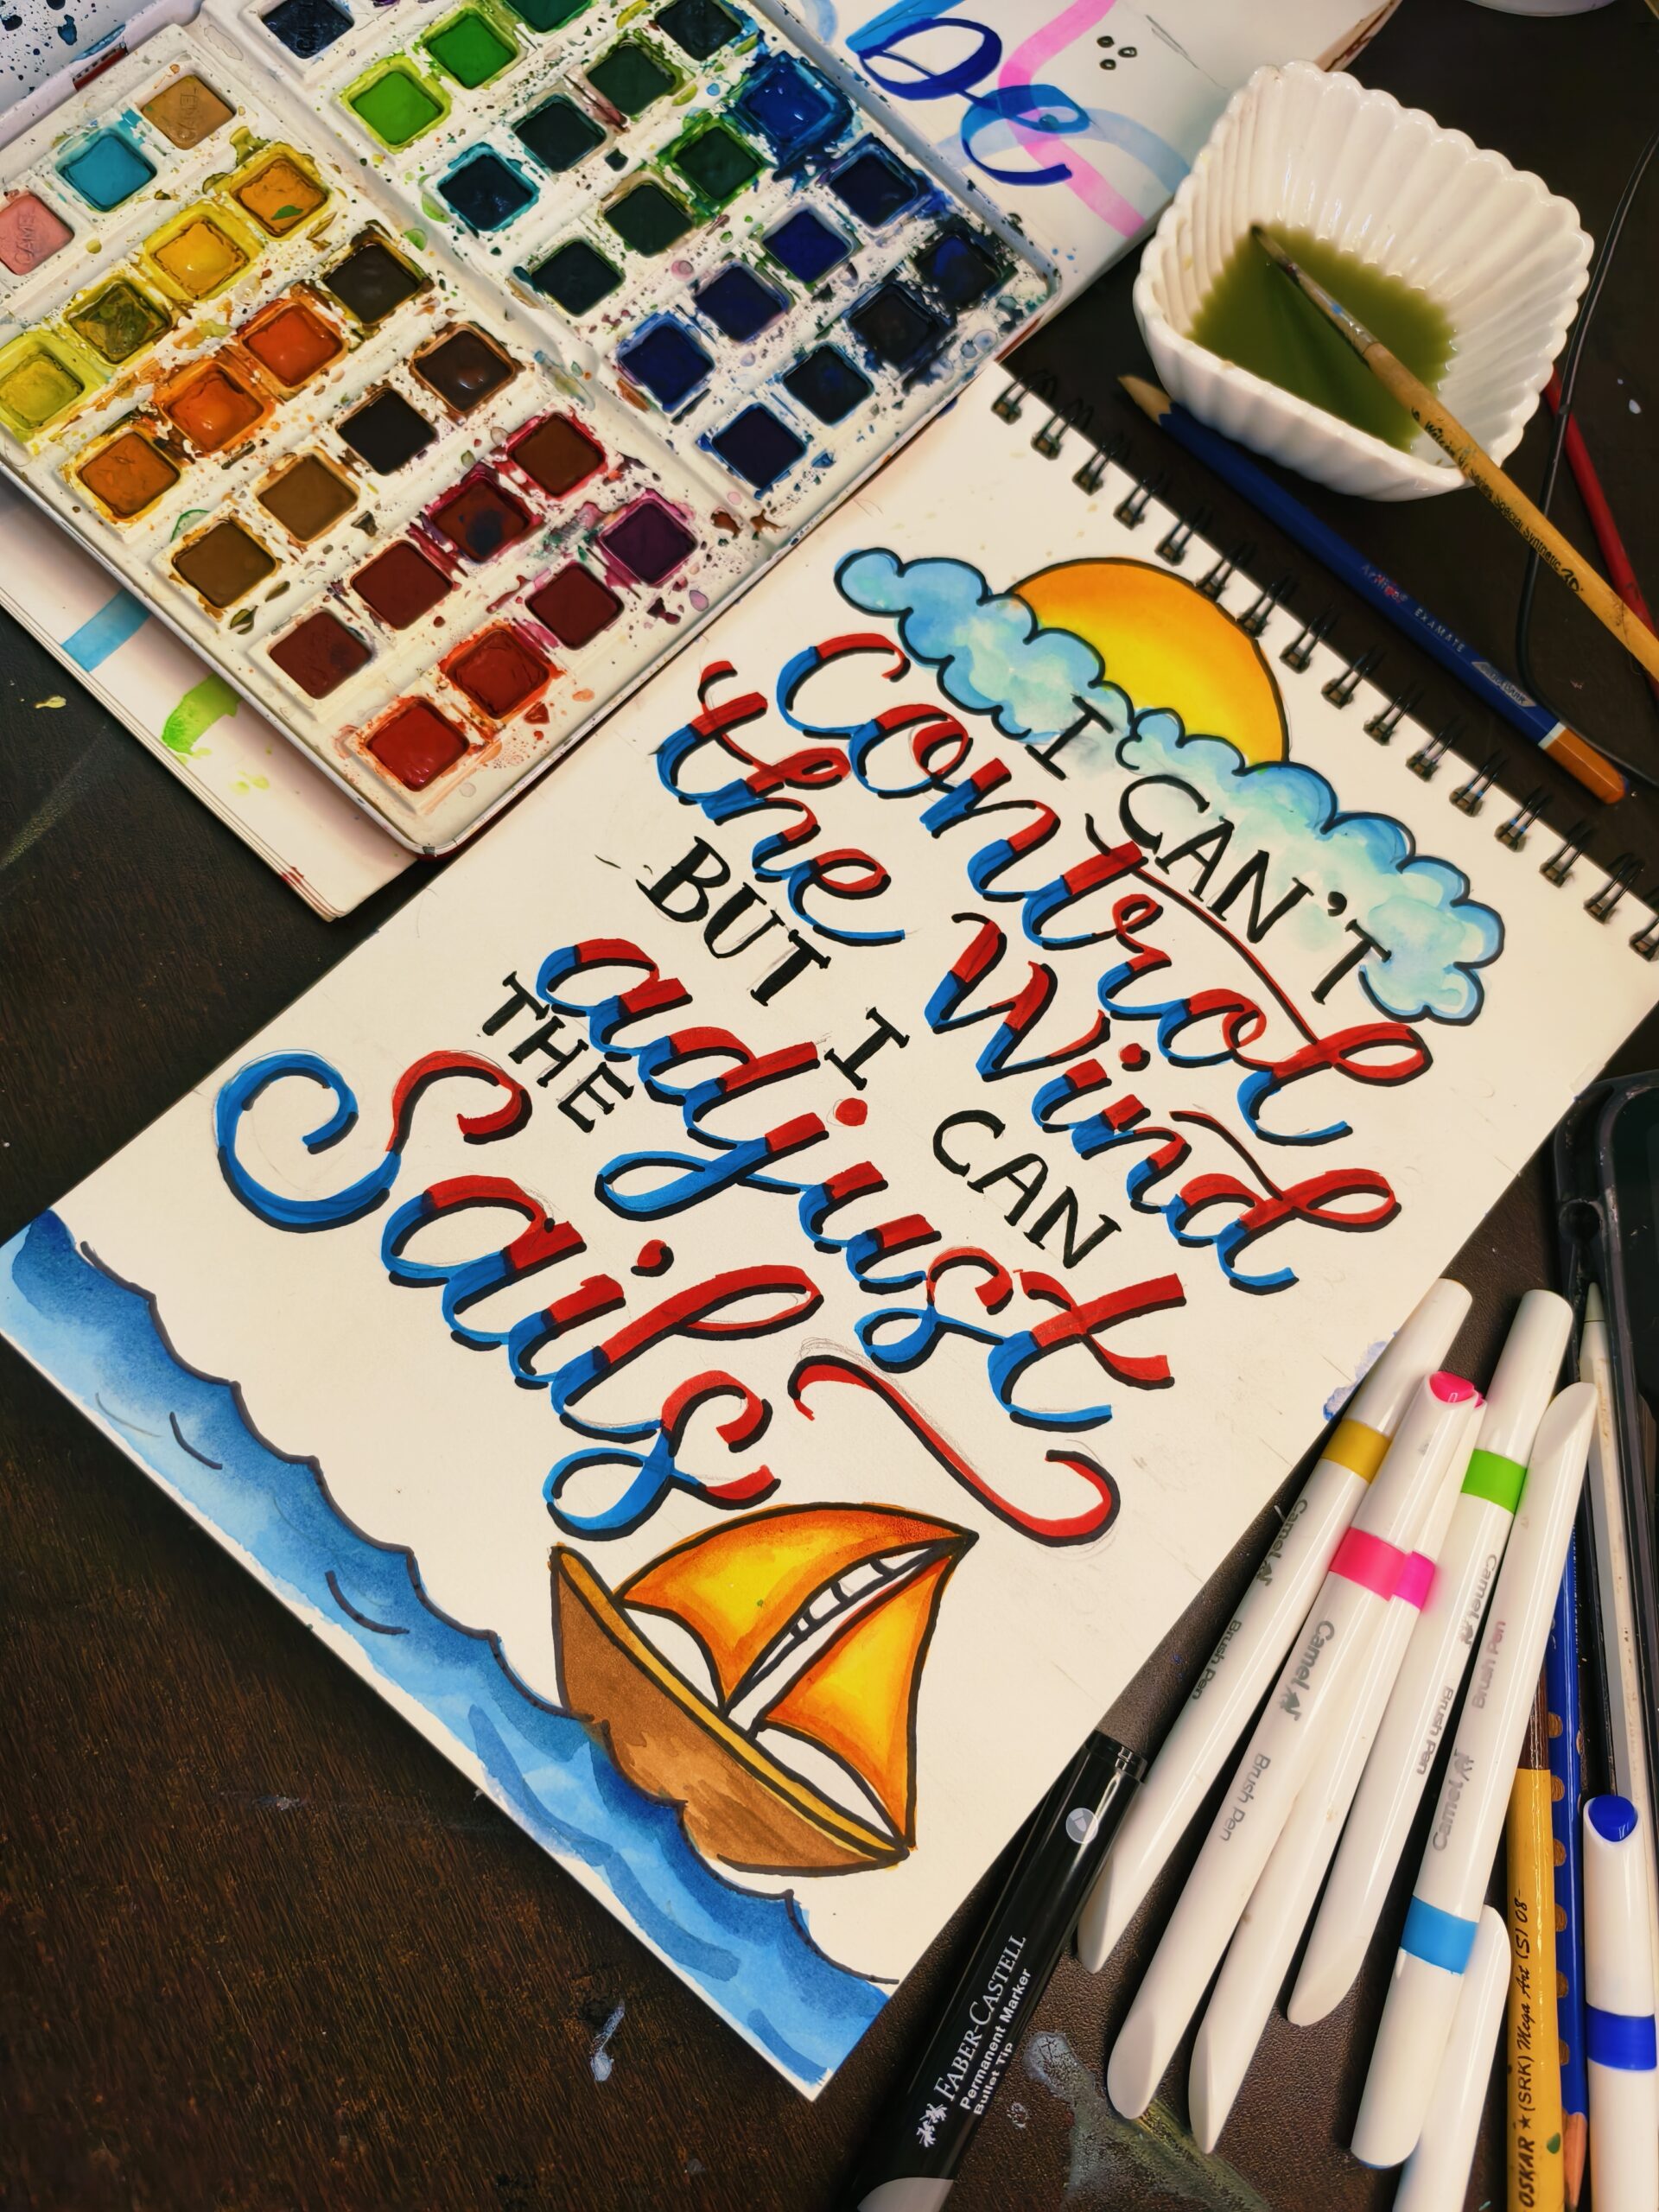 be
I CAN'T
Control
the Wind
BUT I CAN
adjust
THE
Sails
Artist EXAMATE
Camel
Brush Pen
Camel
Brush Pen
Camel
Brush Pen
Camel
Brush Pen
FABER-CASTELL
Permanent Marker
Bullet Tip
OSKAR ★ (SRK) Mega Art (S) 08